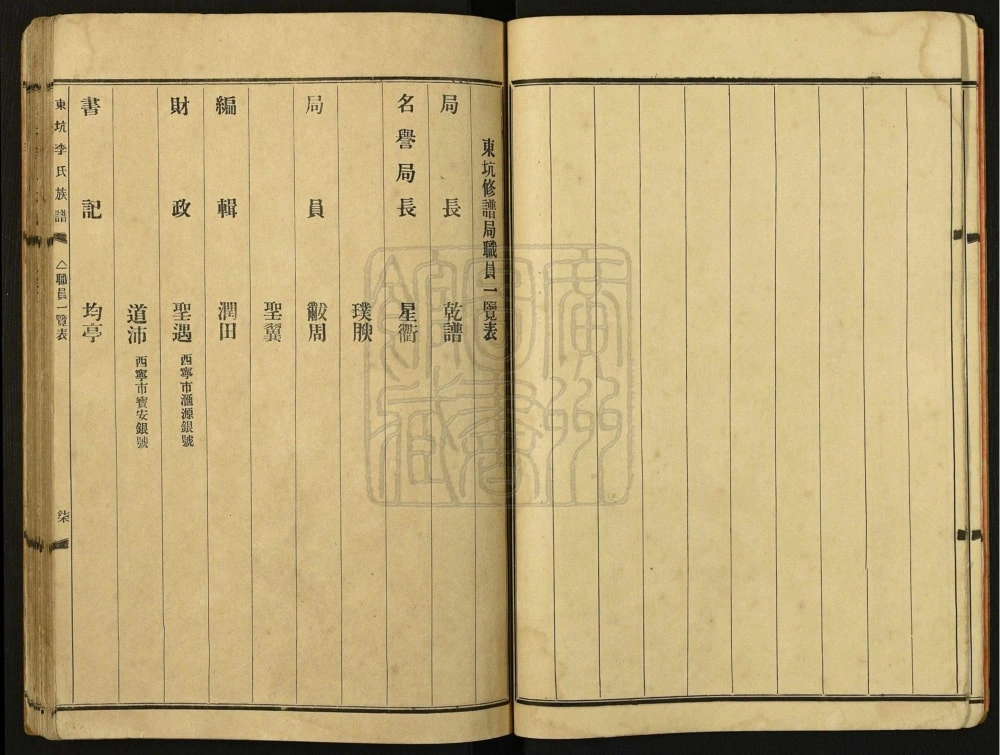 東坑修譜局職員一覽表
局長 乾譜
名譽局長 星衢
璞腴
局員 黻周
聖翼
編輯 潤田
財政 聖遇 西寧市滙源銀號
道沛 西寧市寶安銀號
書記 均亭
東坑李氏族譜 △職員一覽表 柒
廣州圖書館藏